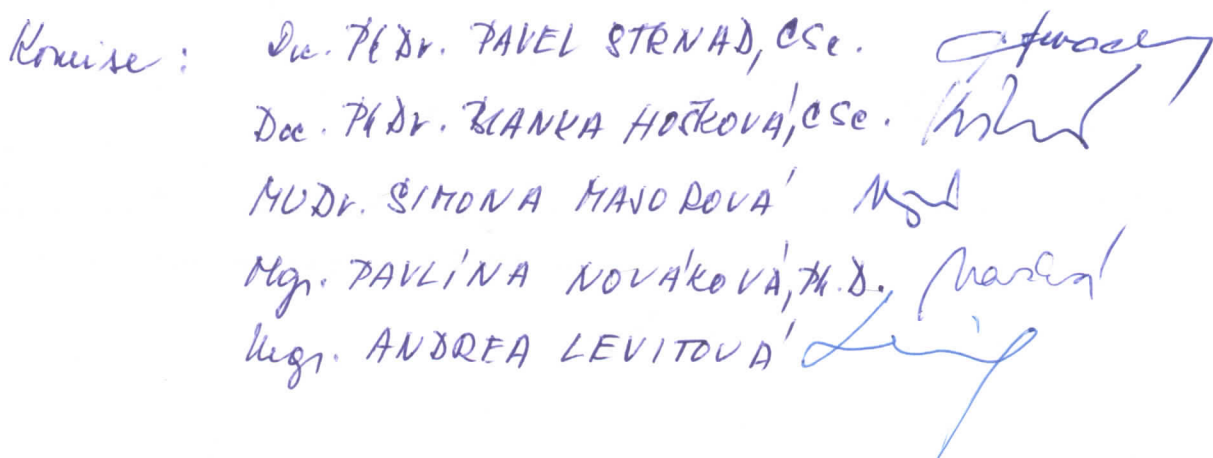 Komise: Doc. PhDr. PAVEL STRNAD, CSc.
Doc. PhDr. BLANKA HOŠKOVÁ, CSc.
MUDr. SIMONA MAJOROVÁ
Mgr. PAVLÍNA NOVÁKOVÁ, Ph.D.
Mgr. ANDREA LEVITOVÁ